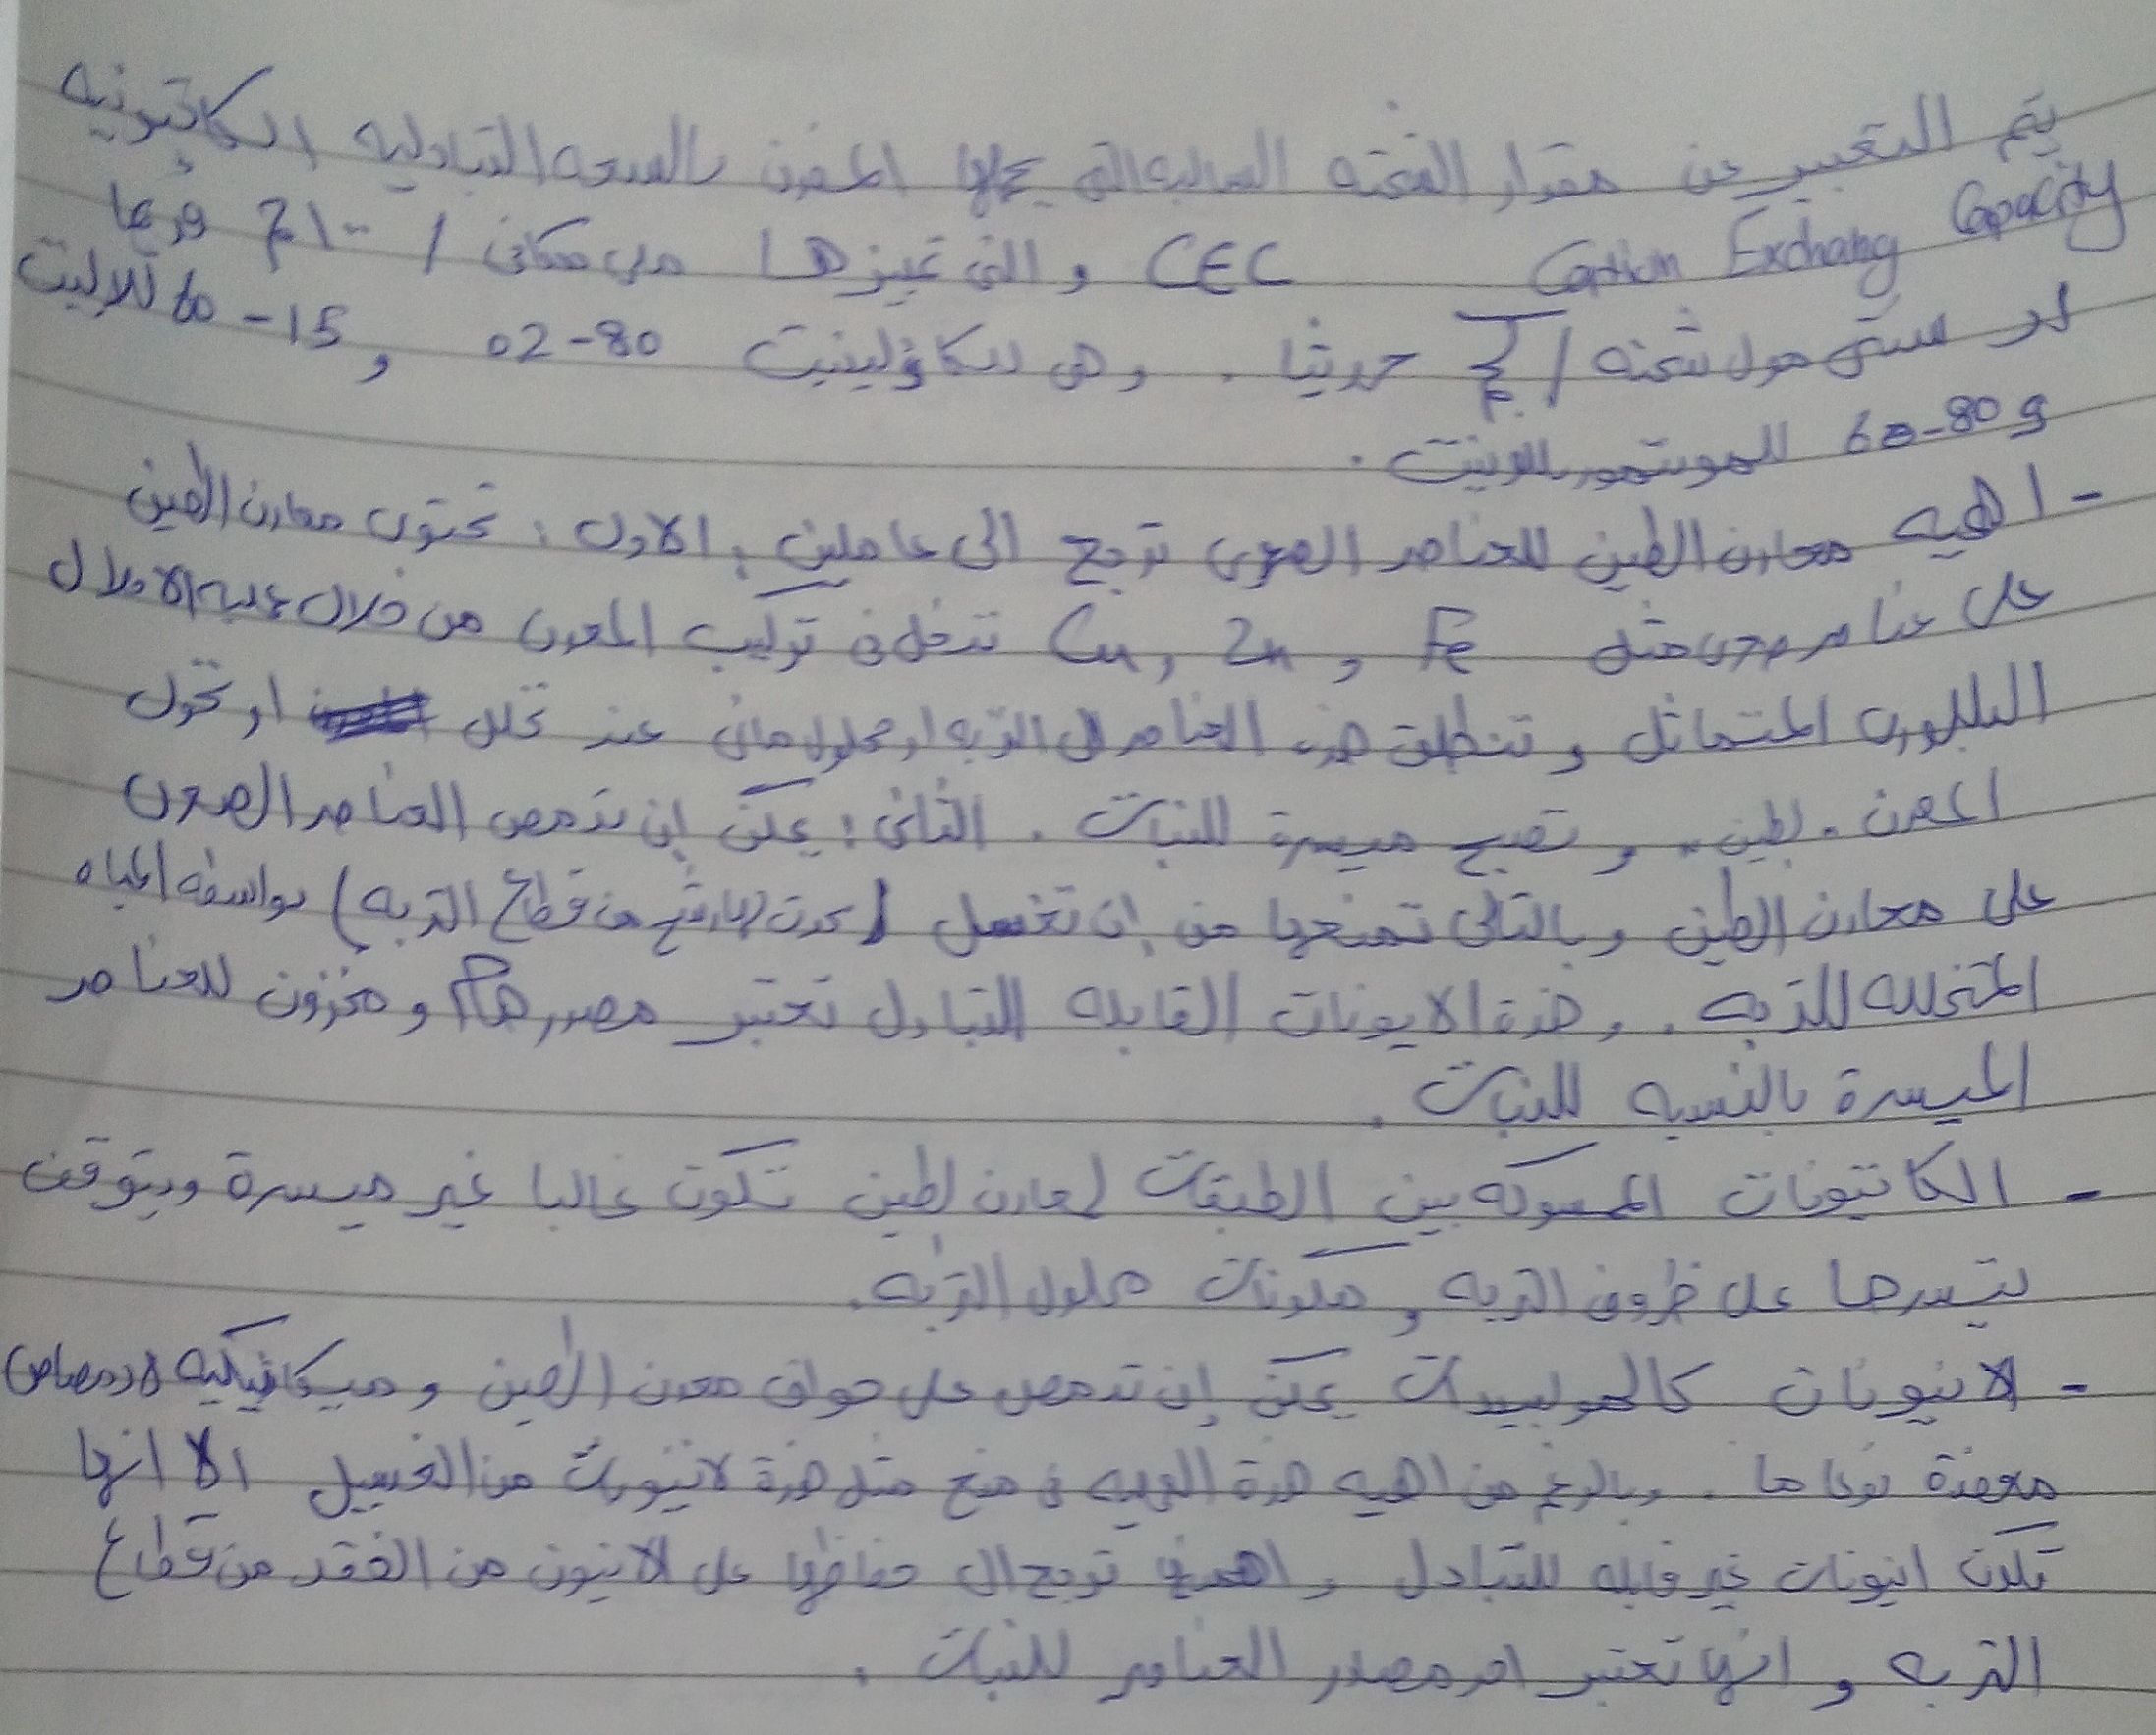 يتم التعبير عن مقدار الشحنه السالبه التى يحملها المعدن بالسعه التبادليه الكاتيونيه
Cation Exchang Capacity CEC والتى تميزها ملى مكافئ / 100جم قديما
او سنتى مول شحنه / كجم حديثا . وهى للكاؤلينيت 02-80 و 15- 60 للاليت
و 80-60 للمونتموريللونيت .
- اهميه معادن الطين للعناصر الصغرى ترجع الى عاملين : الاول : تحتوى معادن الطين
على عناصر صغرى مثل Fe , Zn , Cu تدخل فى تركيب المعدن من خلال عمليه الاحلال
البللورى المتماثل و تنطلق هذه العناصر الى التربه او محلول مائى عند تحلل او تحول
المعدن . لطين . و تصبح ميسرة للنبات . الثانى : يمكن ان تدمص العناصر الصغرى
على معادن الطين وبالتالى تمنعها من ان تغسل ( من قطاع التربه ) بواسطه المياه
المتخلله للتربه . وهذة الايونات القابله التبادل تعتبر مصدر هام و مخزون للعناصر
الميسرة بالنسبه للنبات .
- الكاتيونات الممسوكه بين الطبقات لمعادن لطين تكون غالبا غير ميسرة ويتوقف
تيسرها على ظروف التربه و مكونات محلول التربه .
- الانيونات كالموليبدات يمكن ان تدمص على حواف معدن الطين و ميكانيكيه الادمصاص
معقدة نوعا ما . وبالرغم من اهميه هذة العمليه فى منع مثل هذة لانيونات من الغسيل الا انها
تكون انيونات غير قابله للتبادل و اهميتها ترجع الى حفاظها على الانيون من الفقد من قطاع
التربه و انها تعتبر احد مصادر العناصر للنبات .